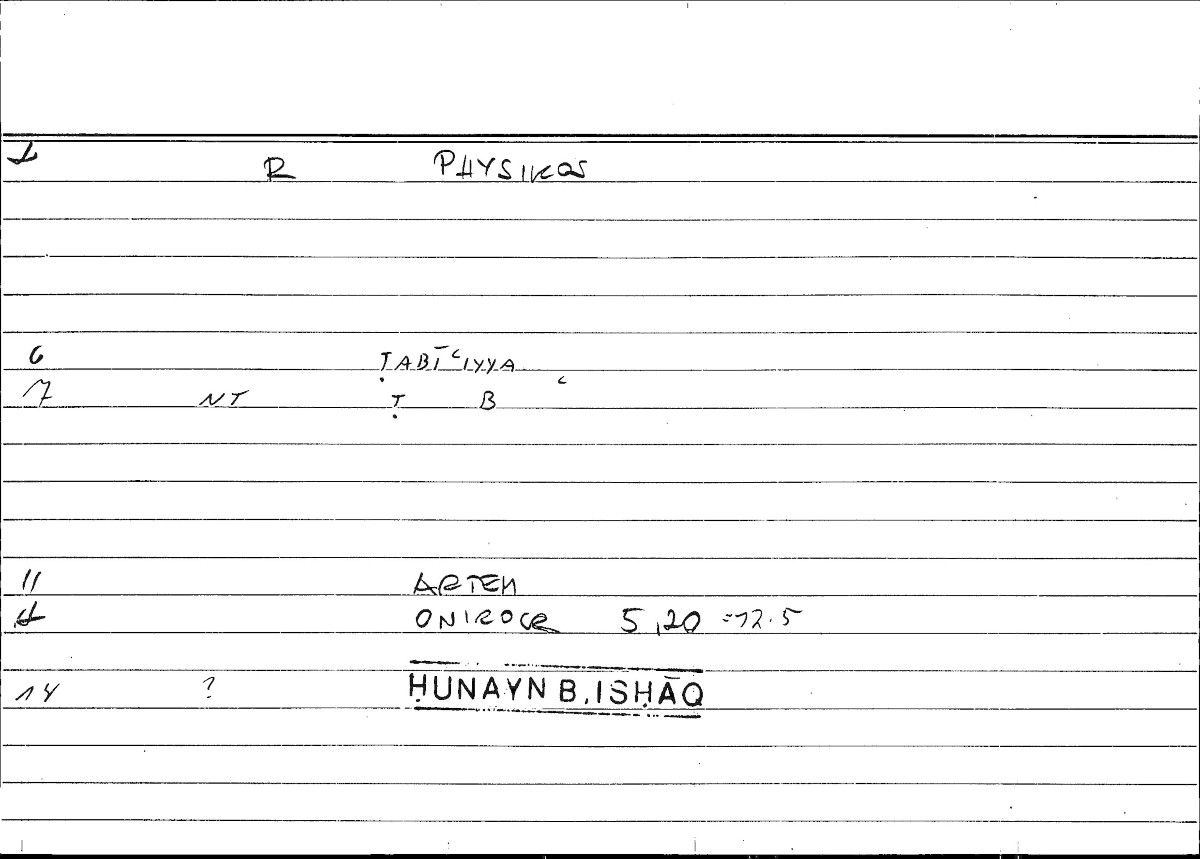 1 R PHYSIKOS
6 ṬABĪʿIYYA
7 NT Ṭ B ʿ
11 ARTEM
ONIROCR 5,20 =12.5
14 ? ḤUNAYN B. ISḤĀQ